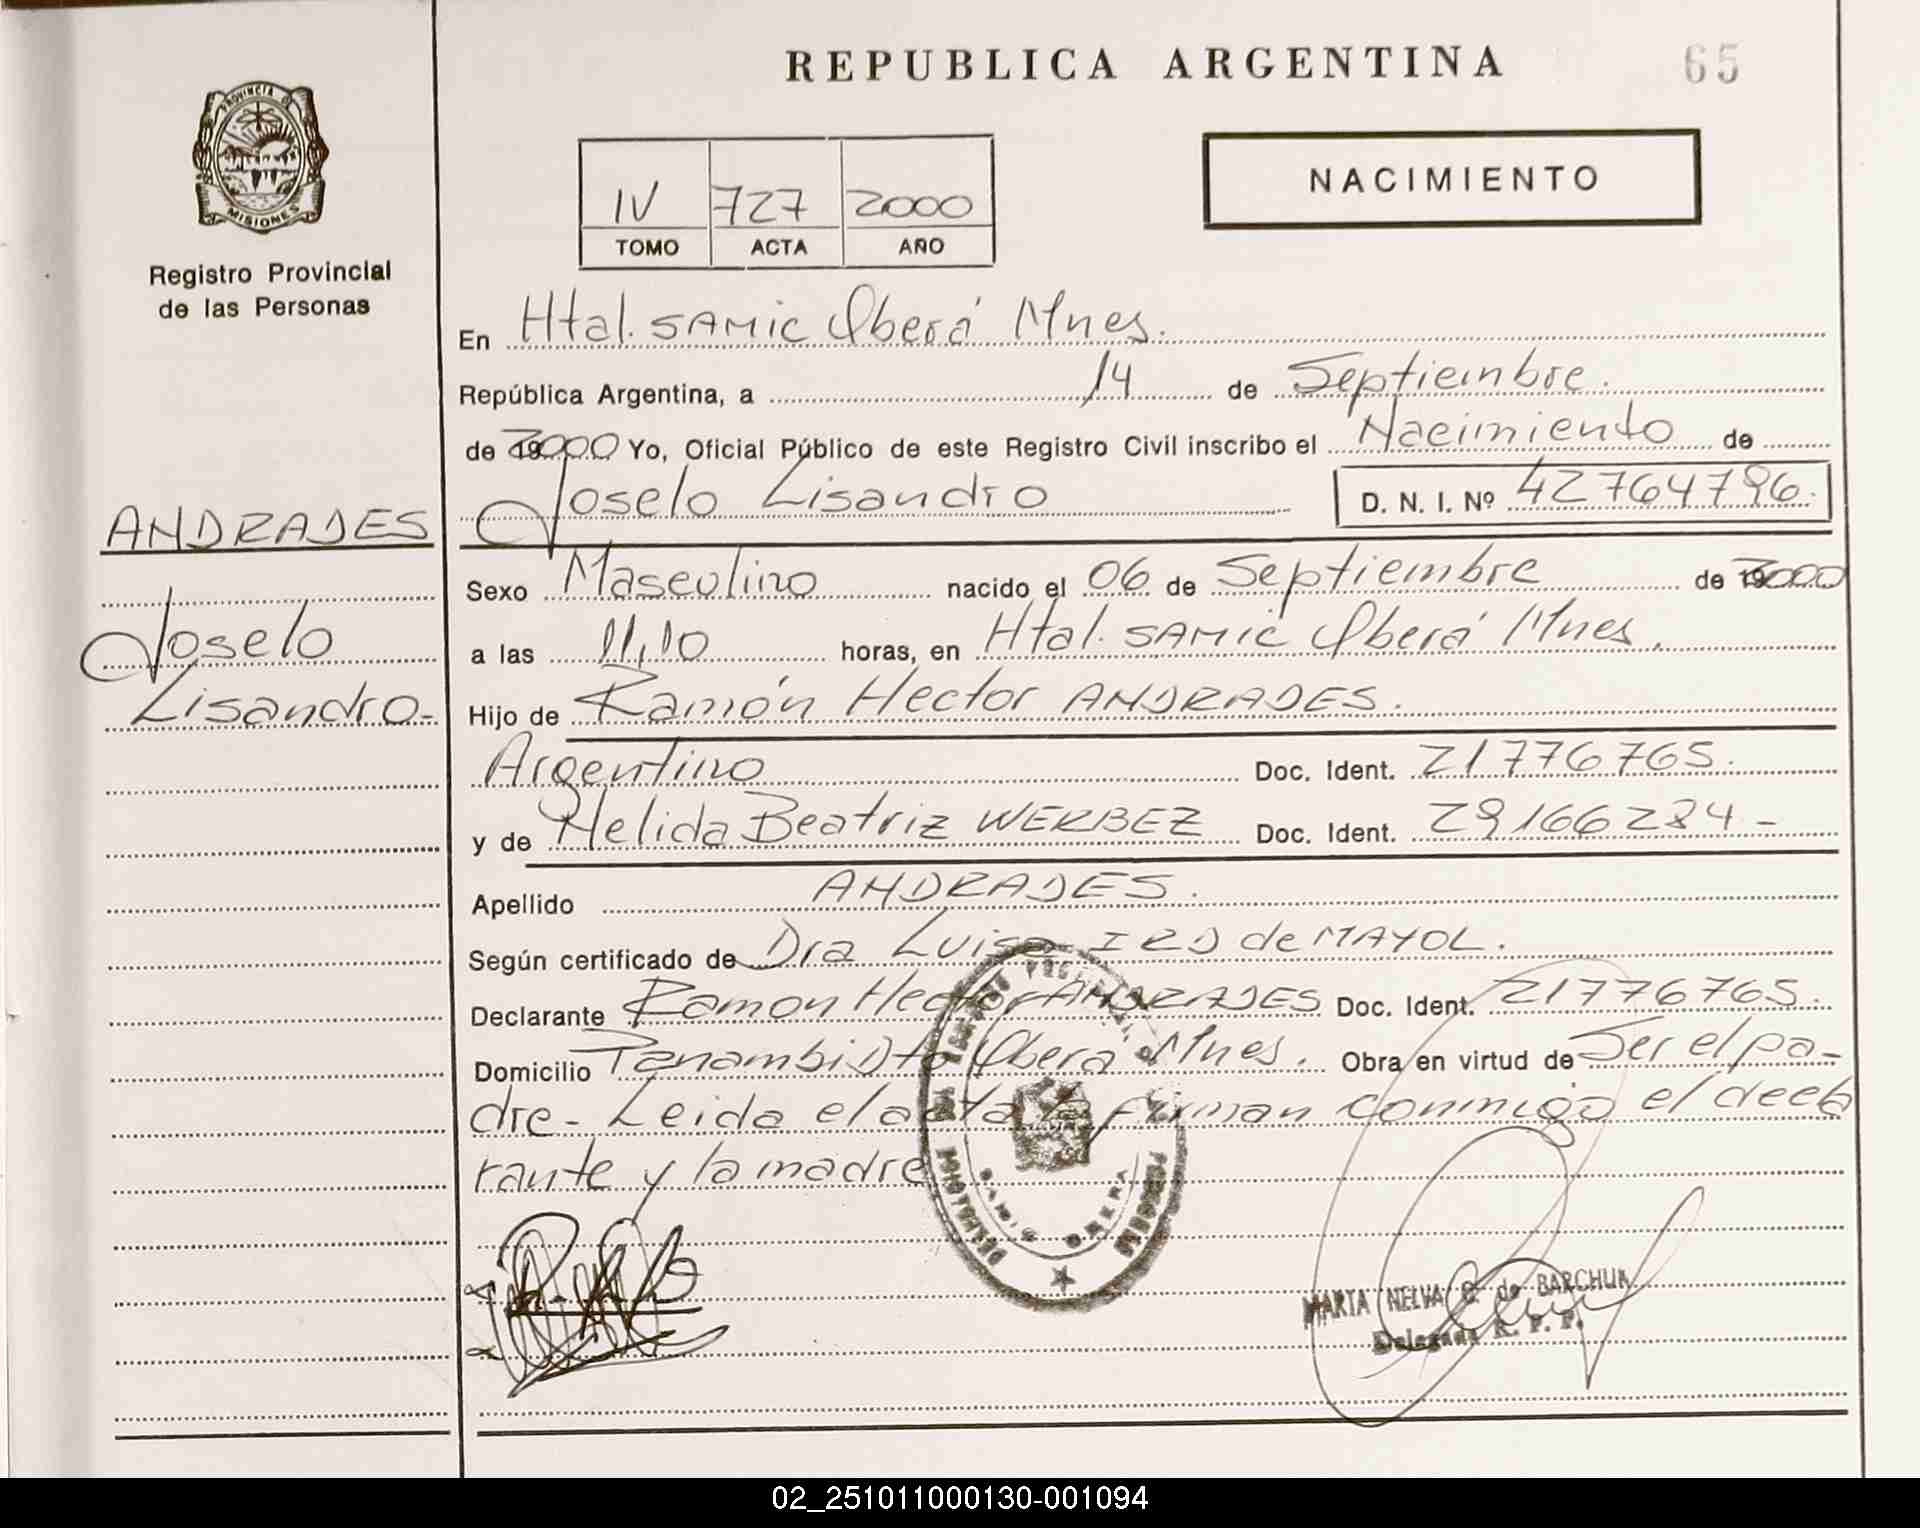 REPUBLICA ARGENTINA
65
PROVINCIA DE
MISIONES
Registro Provincial
de las Personas
NACIMIENTO
IV 727 2000
TOMO ACTA AÑO
En Htal. SAMIC Oberá Mnes.
República Argentina, a 14 de Septiembre.
de 2000 Yo, Oficial Público de este Registro Civil inscribo el Nacimiento de
Joselo Lisandro D. N. I. Nº 42764796.
ANDRADES
Joselo
Lisandro-
Sexo Masculino nacido el 06 de Septiembre de 2000
a las 11,10 horas, en Htal. SAMIC Oberá Mnes.
Hijo de Ramón Hector ANDRADES.
Argentino Doc. Ident. 21776765.
y de Nelida Beatriz WERBEZ Doc. Ident. 29166284-
Apellido ANDRADES.
Según certificado de Dra Luisa de MAYOL.
Declarante Ramon Hector ANDRADES Doc. Ident. 21776765.
Domicilio Panambi Dto Oberá Mnes. Obra en virtud de Ser el pa-
dre- Leida el acta la firman conmigo el decla
rante y la madre
SAMIC OBERA
PERSONAS
MARTA NELVA de BARCHUK
Delegada R. P. P.
02_251011000130-001094